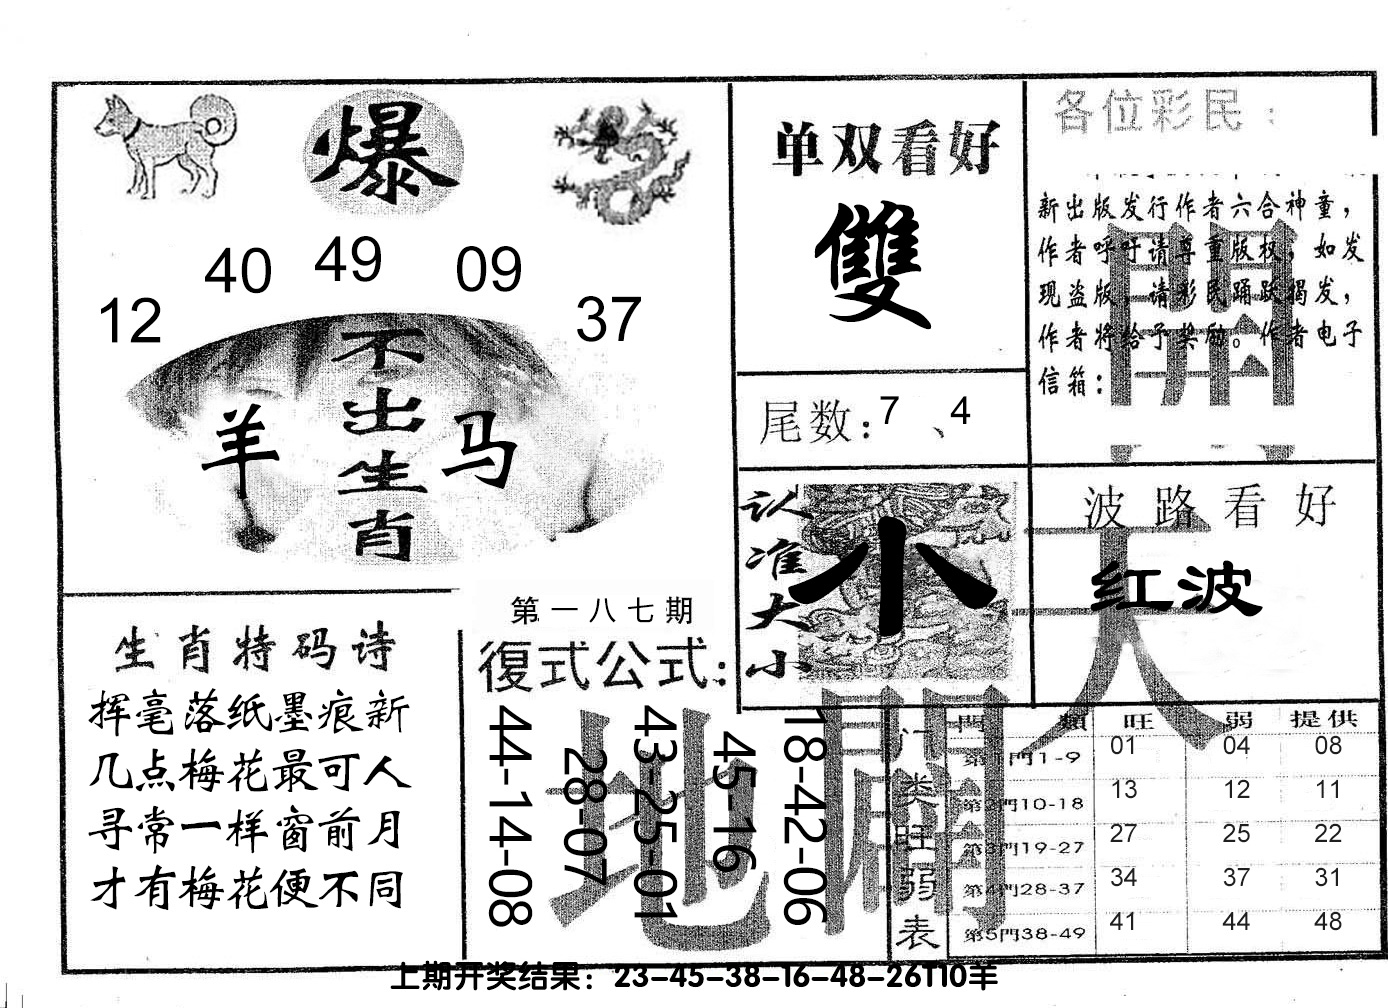 爆
40 49 09
12 37
不出生肖
羊 马
单双看好
雙
尾数：7、4
认准大小
小
各位彩民：
新出版发行作者六合神童，
作者呼吁请尊重版权，如发
现盗版，请彩民踊跃揭发，
作者将给予奖励。作者电子
信箱：
開
波路看好
红波
天
生肖特码诗
挥毫落纸墨痕新
几点梅花最可人
寻常一样窗前月
才有梅花便不同
第一八七期
復式公式：
44-14-08
28-07
43-25-01
45-16
18-42-06
地
門类旺弱表
門類 旺 弱 提供
第1門1-9 01 04 08
第2門10-18 13 12 11
第3門19-27 27 25 22
第4門28-37 34 37 31
第5門38-49 41 44 48
上期开奖结果：23-45-38-16-48-26T10羊